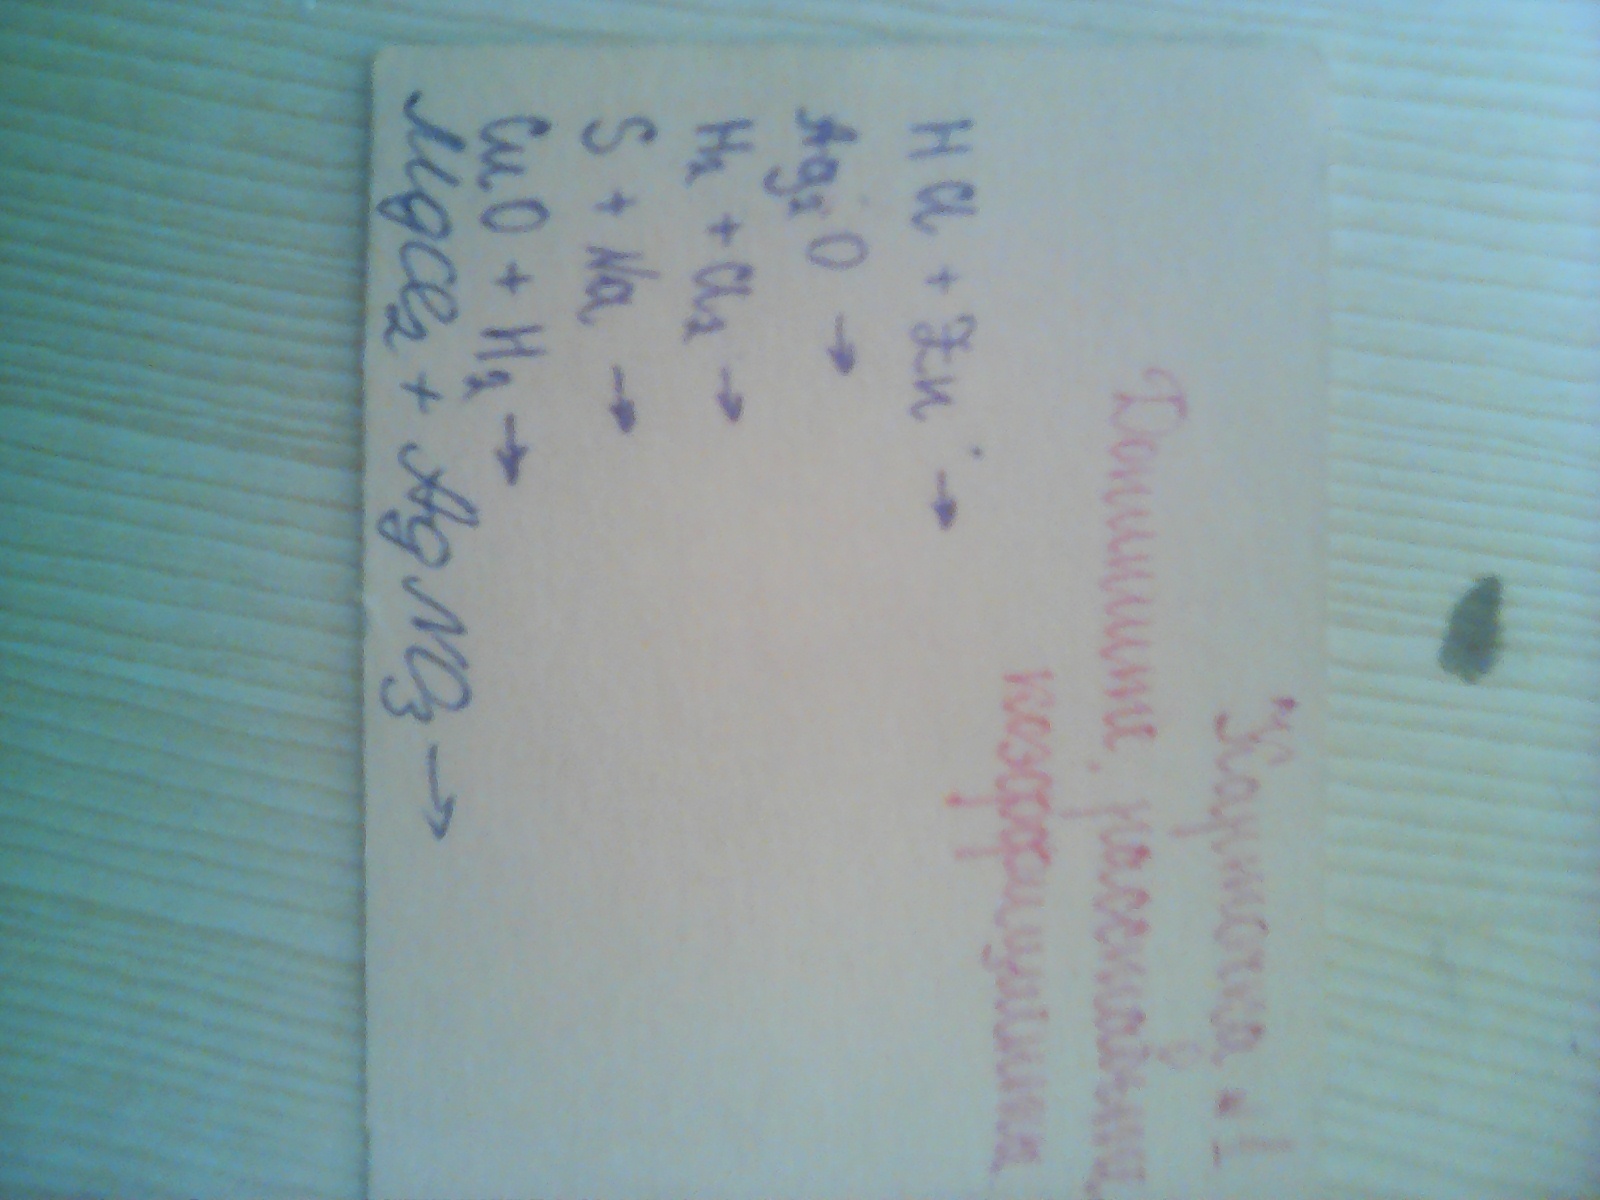 Карточка - 1
Допишите, расставьте
коэффициенты
HCl + Zn →
Ag₂O →
H₂ + Cl₂ →
S + Na →
CuO + H₂ →
MgCl₂ + AgNO₃ →